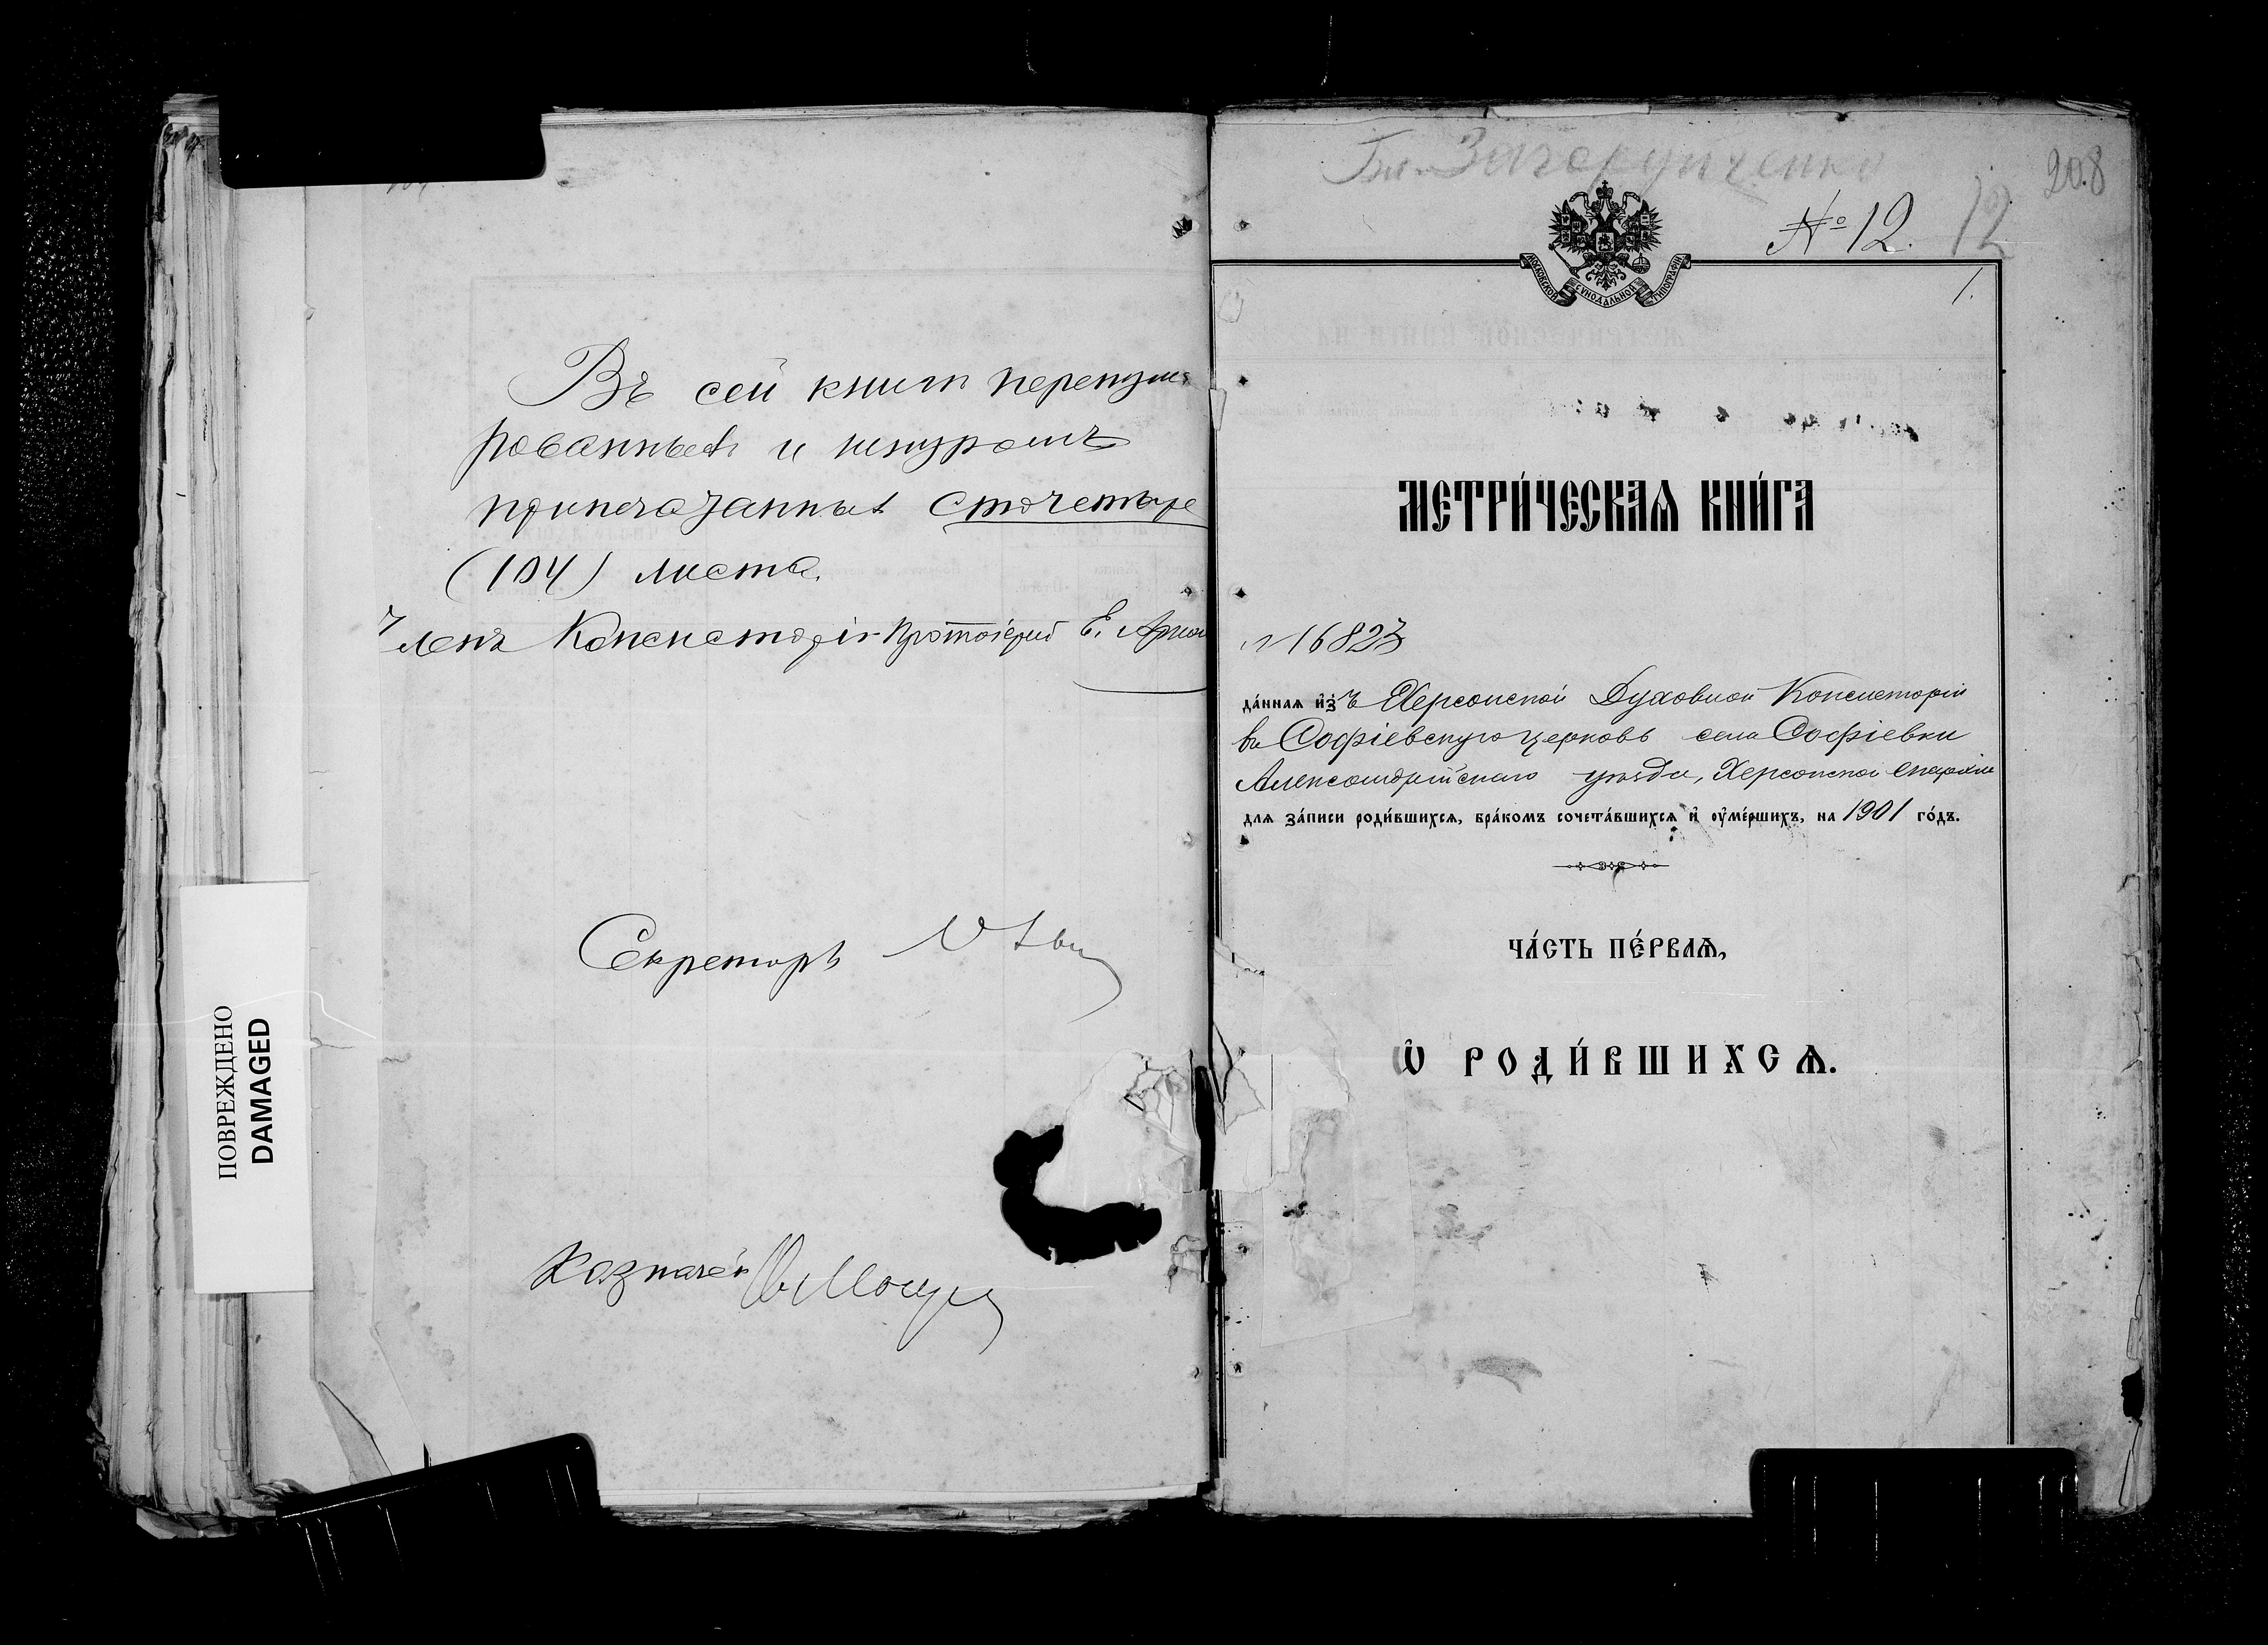 Въ сей книгѣ перенуме
рованныхъ и шнуромъ
припечатанныхъ сточетыре
(104) листа.
Членъ Консисторіи Протоіерей Е.
Секретарь
Казначей
ПОВРЕЖДЕНО
DAMAGED
208
№ 12. 12
МОСКОВСКОЙ СѴНОДАЛЬНОЙ ТИПОГРАФІИ
1.
МЕТРИ́ЧЕСКАѦ КНИ́ГА
№ 16823
да́ннаѧ и҆зъ Херсонской Духовной Консисторіи
въ Софіевскую церковь села Софіевки
Александрійскаго уѣзда, Херсонской Епархіи
длѧ за́писи роди́вшихсѧ, бра́комъ сочета́вшихсѧ и҆ ᲂу҆ме́ршихъ, на 1901 го́дъ.
ЧА́СТЬ ПЕ́РВАѦ,
Ѽ РОДИ́ВШИХСѦ.